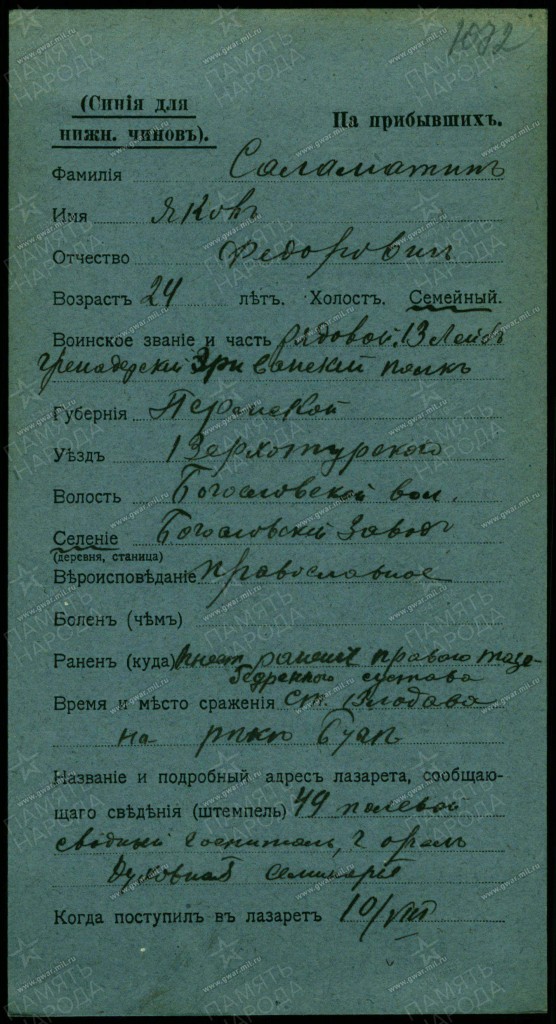 1072
(Синія для
нижн. чиновъ).
На прибывшихъ.
Фамилія Саламатинъ
Имя Яковъ
Отчество Федорович
Возрастъ 24 лѣтъ. Холостъ. Семейный.
Воинское званіе и часть рядовой 13 Лейбъ
гренадерскій Эриванскій полкъ
Губернія Пермской
Уѣздъ Верхотурского
Волость Богословской вол.
Селеніе Богословскій Заводъ
(деревня, станица)
Вѣроисповѣданіе православное
Боленъ (чѣмъ)
Раненъ (куда) ранение правого тазо-
бедренного сустава
Время и мѣсто сраженія ст. Влодава
на рѣкѣ Бугъ
Названіе и подробный адресъ лазарета, сообщаю-
щаго свѣдѣнія (штемпель) 49 полевой
сводный госпиталь, г. орелъ
Духовная семинарія
Когда поступилъ въ лазаретъ 10/VIII
ПАМЯТЬ НАРОДА
www.gwar.mil.ru